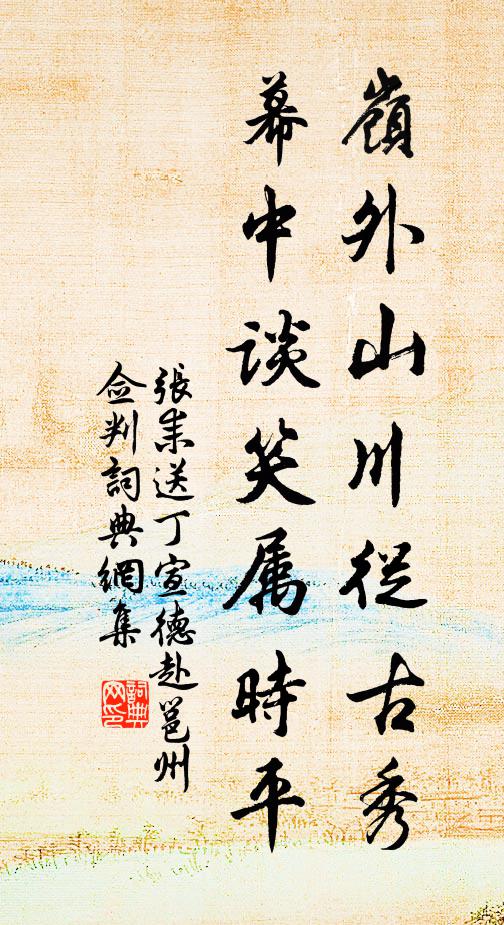 嶺外山川從古秀
幕中談笑属時平
張耒送丁宣德赴邕州
僉判詞典網集
詞典
网印